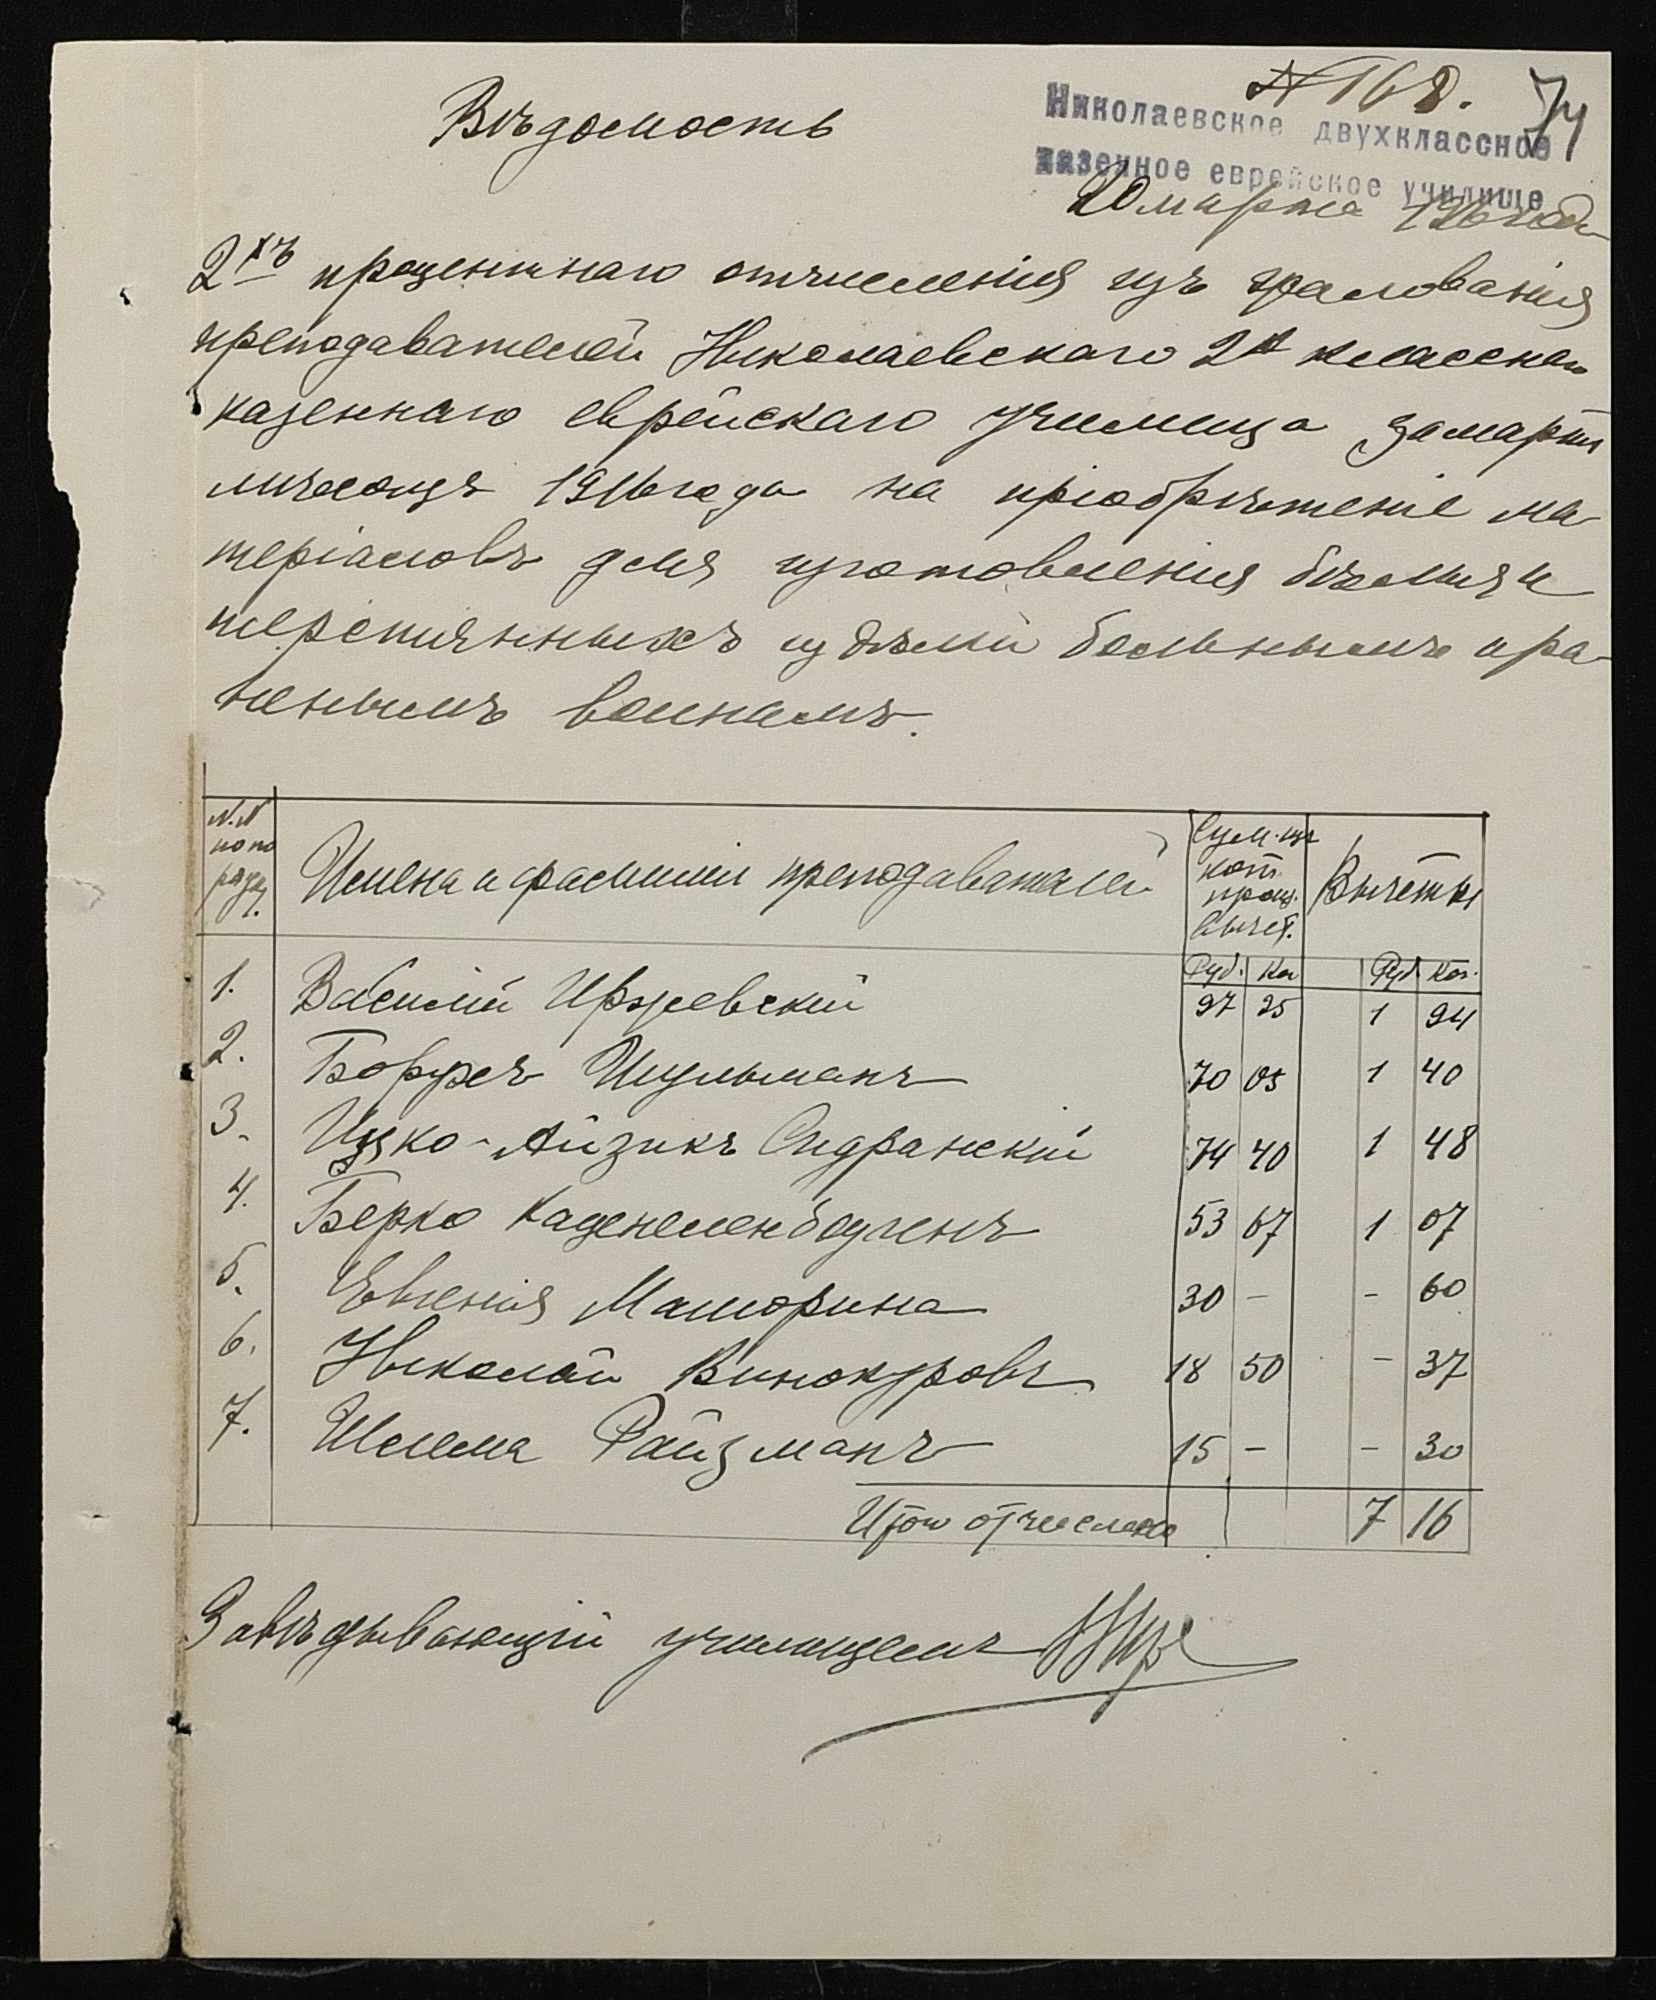 № 168.
74
Вѣдомость
Николаевское двухклассное
казенное еврейское училище
10 марта 1916 года
2хъ процентнаго отчисленія изъ жалованія
преподавателей Николаевскаго 2х классного
казеннаго еврейскаго училища за мартъ
мѣсяцъ 1916 года на пріобрѣтеніе ма-
теріаловъ для изготовленія бѣлья и
шерстянныхъ издѣлій больнымъ и ра-
ненымъ воинамъ.
N.N по по ряд. Имена и фамиліи преподавателей Сум. изъ кот. проц. вычет. Вычеты
Руб. Коп Руб. Коп.
1. Василій 97 25 1 94
2. Шульманъ 70 05 1 40
3. Ицко-Айзикъ Сидранскій 74 40 1 48
4. Берко Каценеленбогенъ 53 67 1 07
5. Евгенія Машорина 30 — – 60
6. Николай Винокуровъ 18 50 – 37
7. Шлема Райзманъ 15 – – 30
Итого отчислено 7 16
Завѣдывающій училищемъ